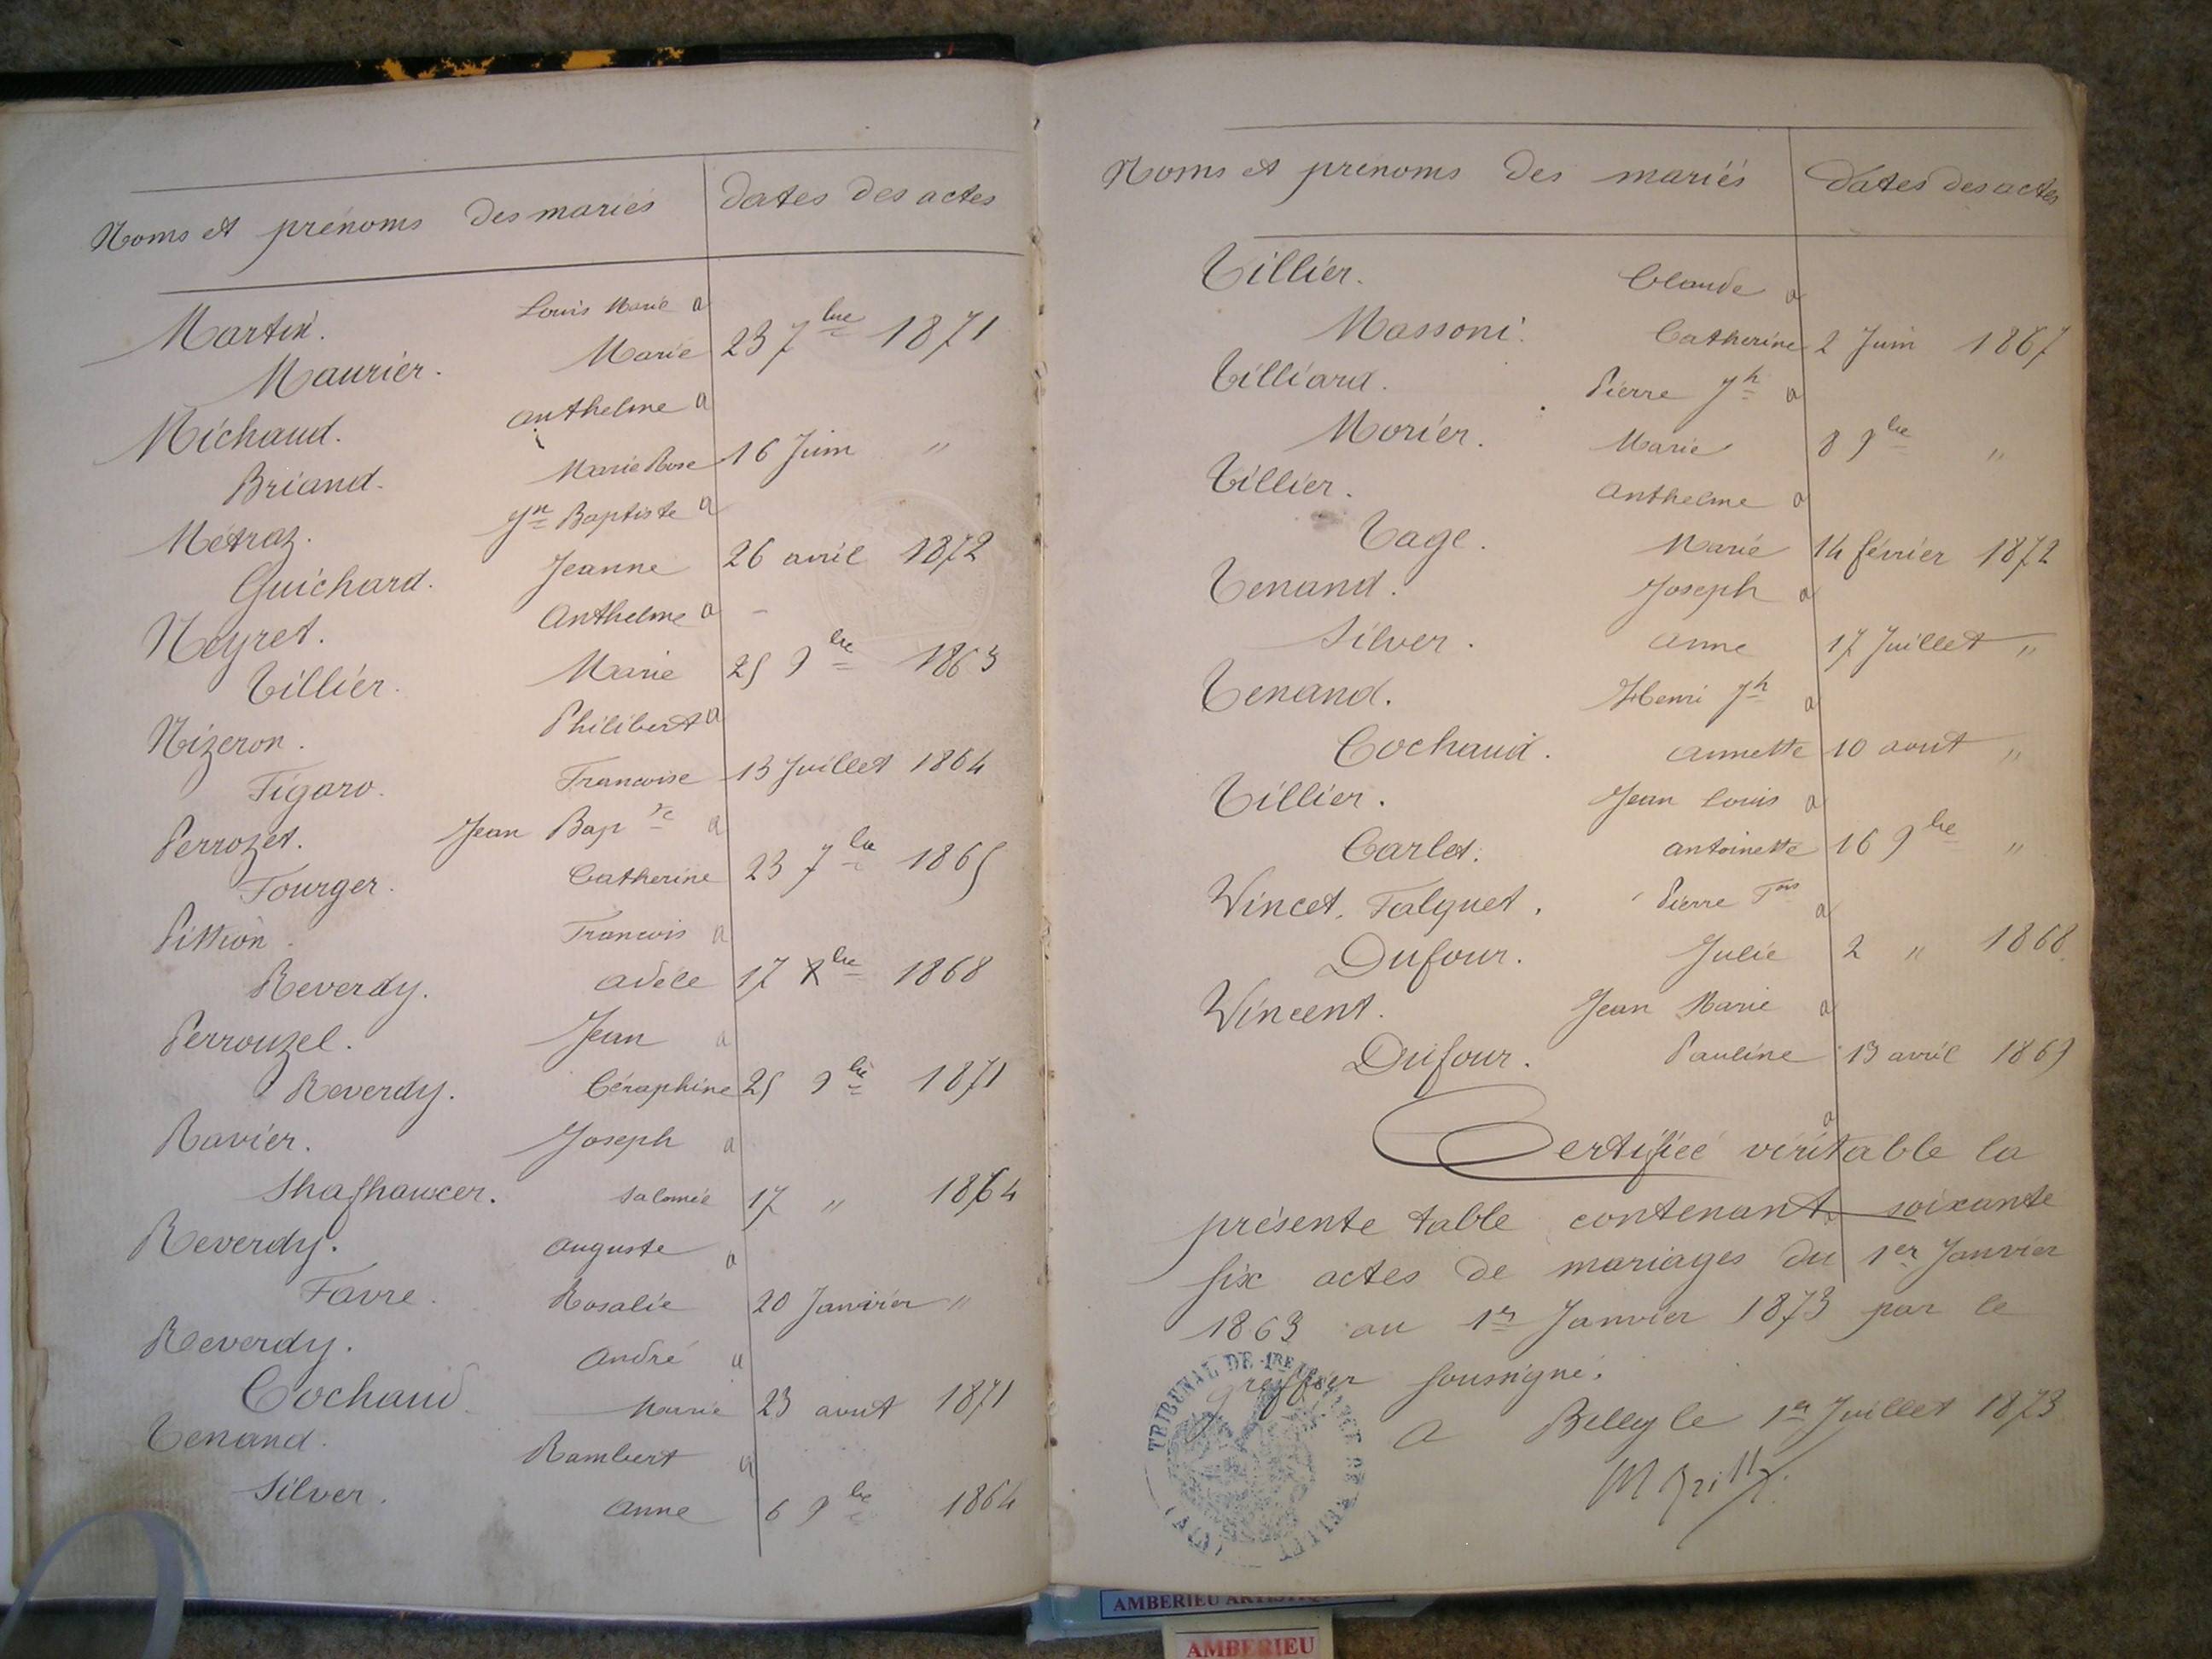 Noms et prénoms des mariés dates des actes
Martin. Louis Marie a
Maurier. Marie 23 7bre 1871
Michaud. Anthelme a
Briand. Marie Rose 16 Juin "
Métraz. Jn Baptiste a
Guichard. Jeanne 26 avril 1872
Neyret. Anthelme a -
Tillier. Marie 25 9bre 1863
Nizeron. Philibert a
Figaro. Francoise 13 Juillet 1864
Perrozet. Jean Bapte a
Fourger. Catherine 23 7bre 1865
Pittion. Francois a
Reverdy. Adèle 17 Xbre 1868
Perrouzel. Jean a
Reverdy. Céraphine 25 9bre 1871
Ravier. Joseph a
Shafhauxer. Salomée 17 " 1864
Reverdy. Auguste a
Favre. Rosalie 20 Janvier "
Reverdy. André a
Cochaud. Marie 23 aout 1871
Tenand. Rambert a
Silver. Anne 6 9bre 1864
Noms et prénoms des mariés dates des actes
Tillier. Claude a
Massoni. Catherine 2 Juin 1867
Tilliard. Pierre Jh a
Morier. Marie 8 9bre "
Tillier. Anthelme a
Tage. Marie 14 février 1872
Tenand. Joseph a
Silver. Anne 17 Juillet "
Tenand. Henri Jh a
Cochaud. Annette 10 aout "
Tillier. Jean Louis a
Carlet. Antoinette 16 9bre "
Vincet. Falquet. Pierre Fois a
Dufour. Julie 2 " 1868
Vincent. Jean Marie a
Dufour. Pauline 13 avril 1869
a
Certifiée véritable la
présente table contenant soixante
six actes de mariages du 1er Janvier
1863 au 1er Janvier 1873 par le
greffier soussigné.
A Belley le 1er Juillet 1873
TRIBUNAL DE 1RE INSTANCE DE BELLEY
(AIN)
AMBERIEU
AMBERIEU